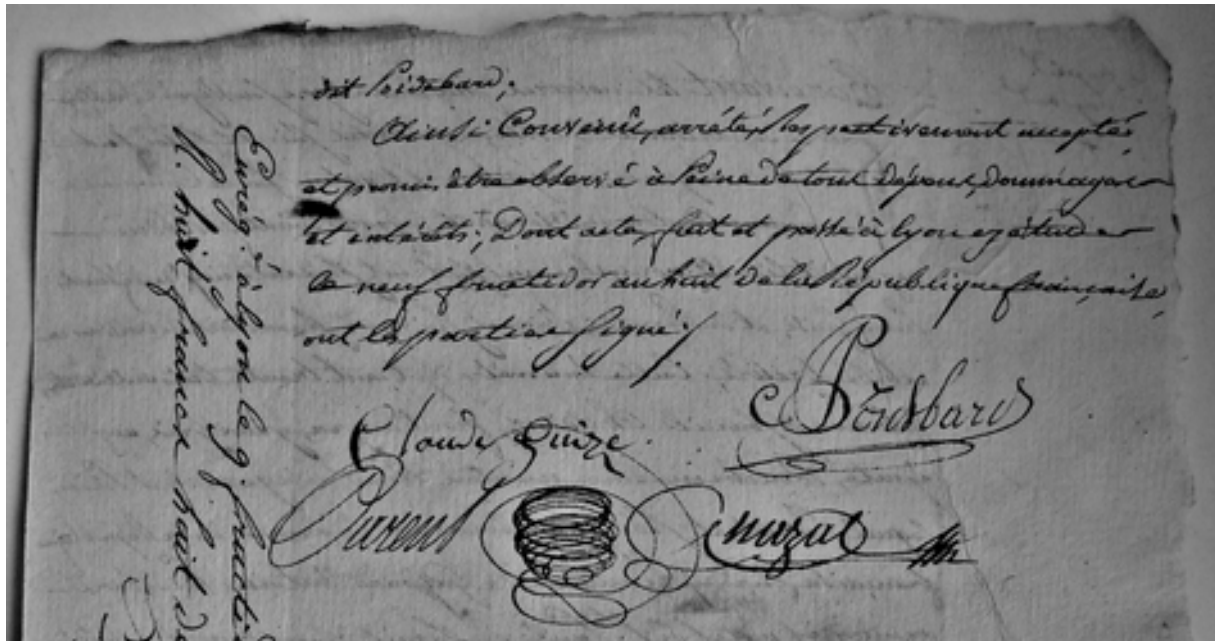 dit Peidebard;
Ainsi Convenû, arrêté, Respectivement accepté,
et promis être observé à Peine de tous dépens, dommages
et intérêts; Dont acte, fait et passé à lyon ez étude
le neuf fructidor an huit de la République française,
ont les parties Signé./
Claude Guize.
Enrég. à lyon le 9 fructid
R. huit francs huit d